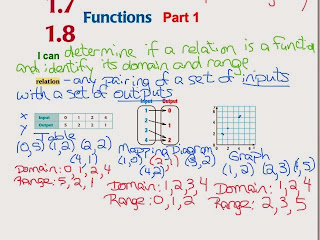 1.7
1.8
Functions Part 1
I can determine if a relation is a function
and identify its domain and range
relation - any pairing of a set of inputs
with a set of outputs
Input Output
x Input 0 1 2 4
y Output 5 2 2 1
Table Mapping Diagram Graph
(0,5) (1,2) (2,2)
(4,1)
(1,0) (2,1) (3,2)
(4,2)
(1,2) (2,3) (4,5)
Domain: 0,1,2,4
Range: 5,2,1
Domain: 1,2,3,4
Range: 0,1,2
Domain: 1,2,4
Range: 2,3,5